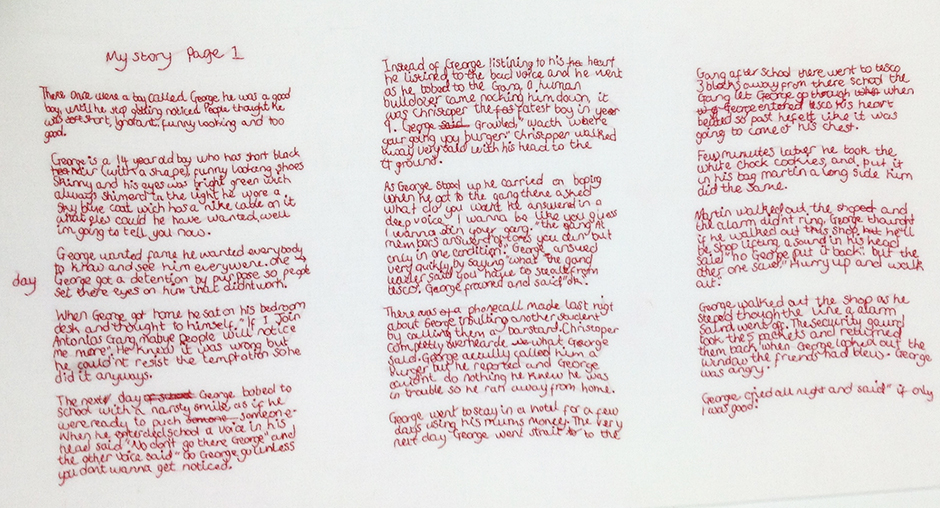 My story Page 1
There once were a boy called George he was a good
boy, until he stop getting noticed People thought he
was short, ignorant, funny looking and too
good.
George is a 14 year old boy who has short black
hair (with a shape), funny looking shoes
Shinny and his eyes was bright green with
always shimerd in the light he wore a
sky blue coat with has a nike lable on it
what eles could he have wanted, well
im going to tell you now.
George wanted fame he wanted everybody
to know and see him everywhere. One
day
George got a detention by purpose so people
set there eyes on him that didnt work.
When George got home he sat on his bedroom
desk and thought to himself, "If I Join
Antonias Gang, mabye people will notice
me more". He knew it was wrong but
he could'nt resist the temptation so he
did it anyways.
The next day George bobed to
school with a narsty smile as if he
were ready to puch someone.
When he enterded school a voice in his
head said "No don't go there George" and
the other voice said "Go George go unless
you dont wanna get noticed.
Instead of George listening to his heart
he listined to the bad voice and he went
as he bobed to the Gang, a human
bulldozer came nocking him down, it
was Christoper the fastest boy in year
9. George Growled, "watch where
your going you burger". Christopper walked
away very told with his head to the
ground.
As George stood up he carried on boping
when he got to the gang there asked
what do you want he answerd in a
deep voice" I wanna be like you guess
I wanna join your gang." the gang
members answerd of cores you can but
only in one condition." George answed
very quikly by saying "what" the gang
leader said you have to steal from
tesco". George frowned and said "ok".
There was a phonecall made last night
about George insulting another student
by calling them a barstard. Christoper
completly overhearde what George
said. George actully called him a
burger but he reported and George
could'nt do nothing he knew he was
in trouble so he ran away from home.
George went to stay in a hotel for a few
days using his mums money. The very
next day George went strait to the
Gang after school there went to tesco
3 blocks away from there school the
Gang let George go through when
George entered tesco his heart
beated so fast he felt like it was
going to come of his chest.
Few minutes later he took the
white chock cookies, and, put it
in his bag martin a long side him
did the same.
Martin walked out the shop and
the alarm didn't ring. George thought
if he walked out this shop, he'll
be shop lifting a sound in his head
said "no George put it back." but the
other one said "Hurry up and walk
out."
George walked out the shop as he
steped though the line a alarm
saund went off. The security gaurd
took the 5 packets and returned
them back when George loohed out the
window the friends had blew. George
was angry.
George cried all night and said "if only
I was good."